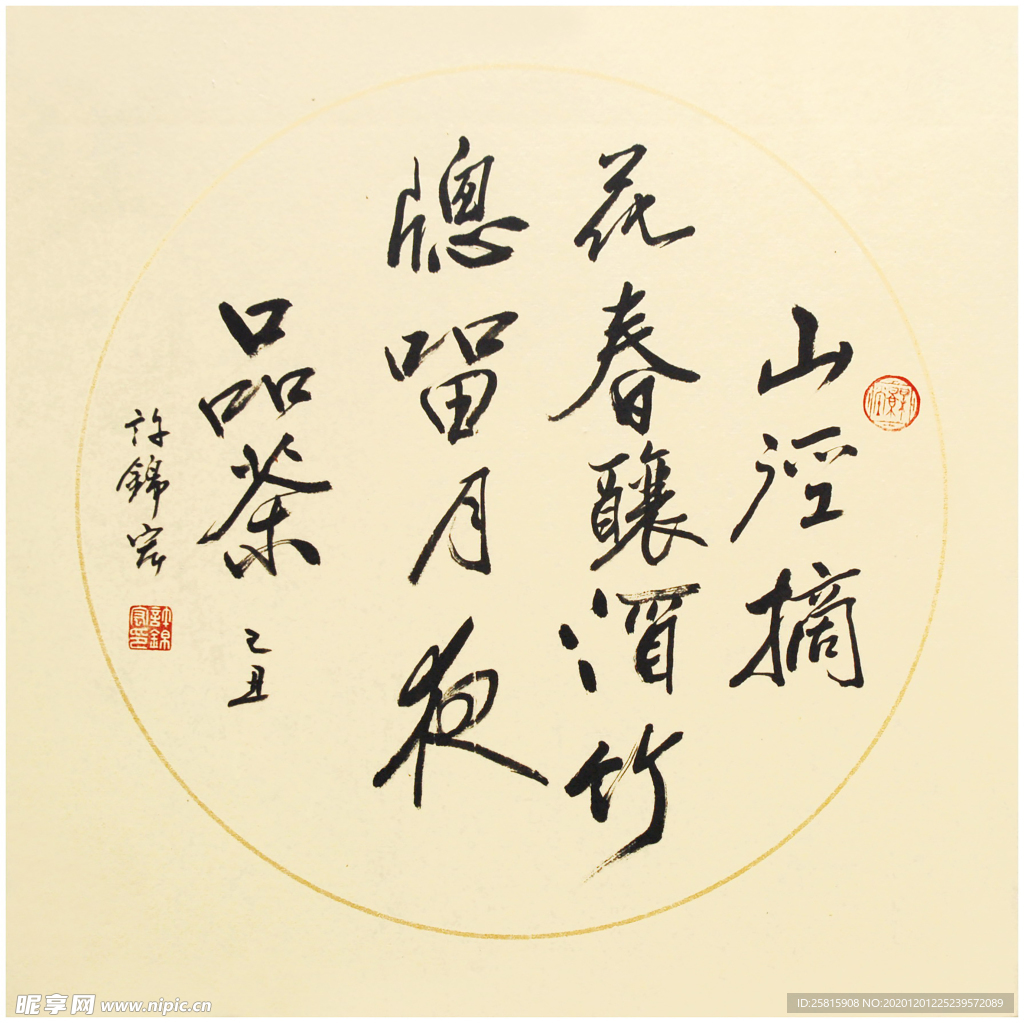 山淫摘
花春釀酒竹
牕留月夜
品茶
乙丑
許錦宏
許錦
昵享网 www.nipic.cn
ID:25815908 NO:20201201225239572089